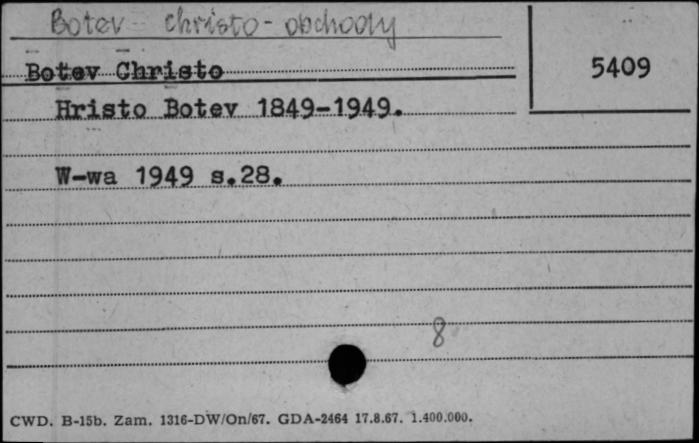 Botev Christo - obchody
5409
Botev Christo
Hristo Botev 1849-1949.
W-wa 1949 s.28.
8
CWD. B-15b. Zam. 1316-DW/On/67. GDA-2464 17.8.67. 1.400.000.